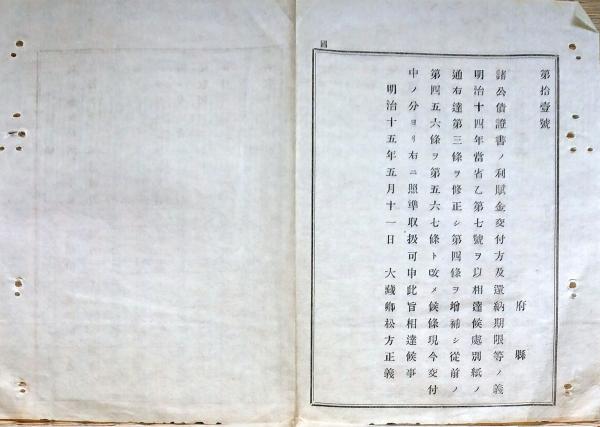 國
第拾壹號
府縣
諸公債證書ノ利賦金交付方及還納期限等ノ義
明治十四年當省乙第七號ヲ以相達候處別紙ノ
通右達第三條ヲ修正シ第四條ヲ增補シ從前ノ
第四五六條ヲ第五六七條ト改メ候條現今交付
中ノ分ヨリ右ニ照準取扱可申此旨相達候事
明治十五年五月十一日 大藏卿松方正義